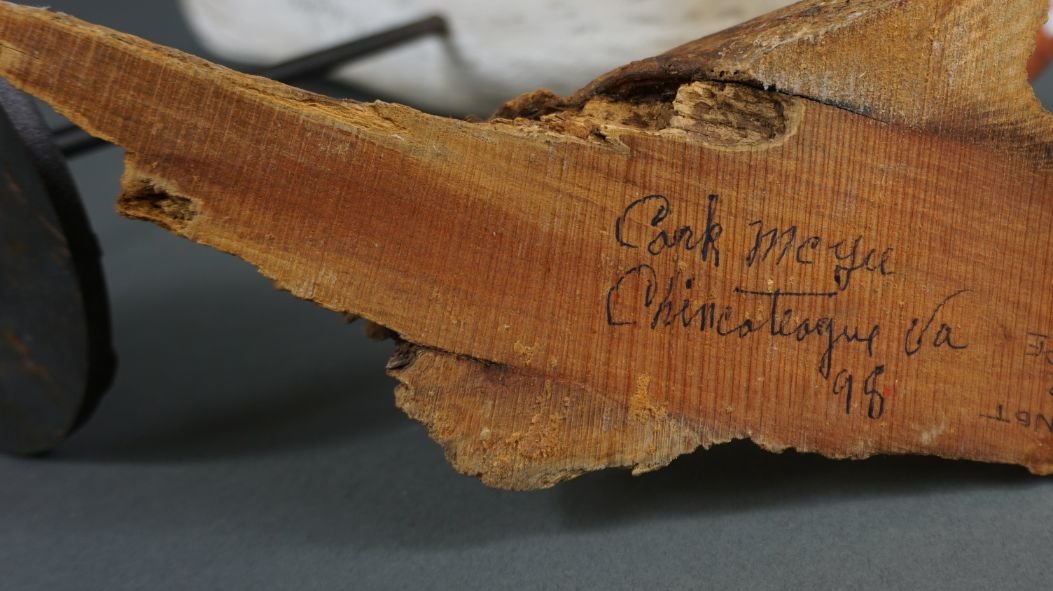 Cork McGee
Chincoteague Va
98
NOT